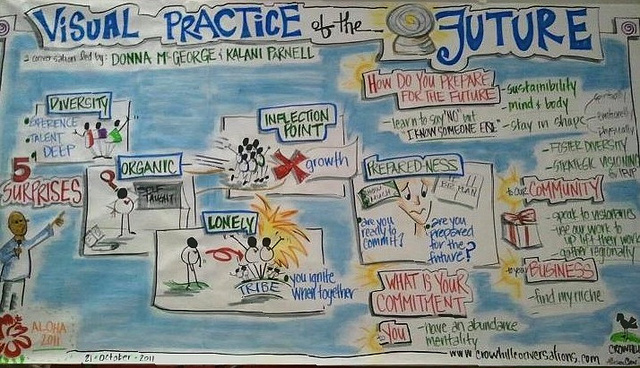 VISUAL PRACTICE of the FUTURE
a conversation led by: DONNA McGEORGE & KALANI PARNELL
5 SURPRISES
DIVERSITY
TALENT
DEEP
ORGANIC
SELF TAUGHT
INFLECTION
POINT
growth
LONELY
TRIBE
you ignite
when together
HOW DO YOU PREPARE
FOR THE FUTURE
- learn to say "NO" but
"I KNOW SOMEONE ELSE"
- sustainibility
- mind & body
- stay in shape
- FOSTER DIVERSITY
- STRATEGIC VISIONING
PREPARED-NESS
are you
ready to
commit?
are you
prepared
for the
future?
WHAT IS YOUR
COMMITMENT
to YOU
- have an abundance
mentality
to our COMMUNITY
- speak to visionaries
- use our work to
up lift their work
- gather regionally
to your BUSINESS
- find my niche
ALOHA
2011
21 - October - 2011
www.crowhillconversations.com
CROWHILL